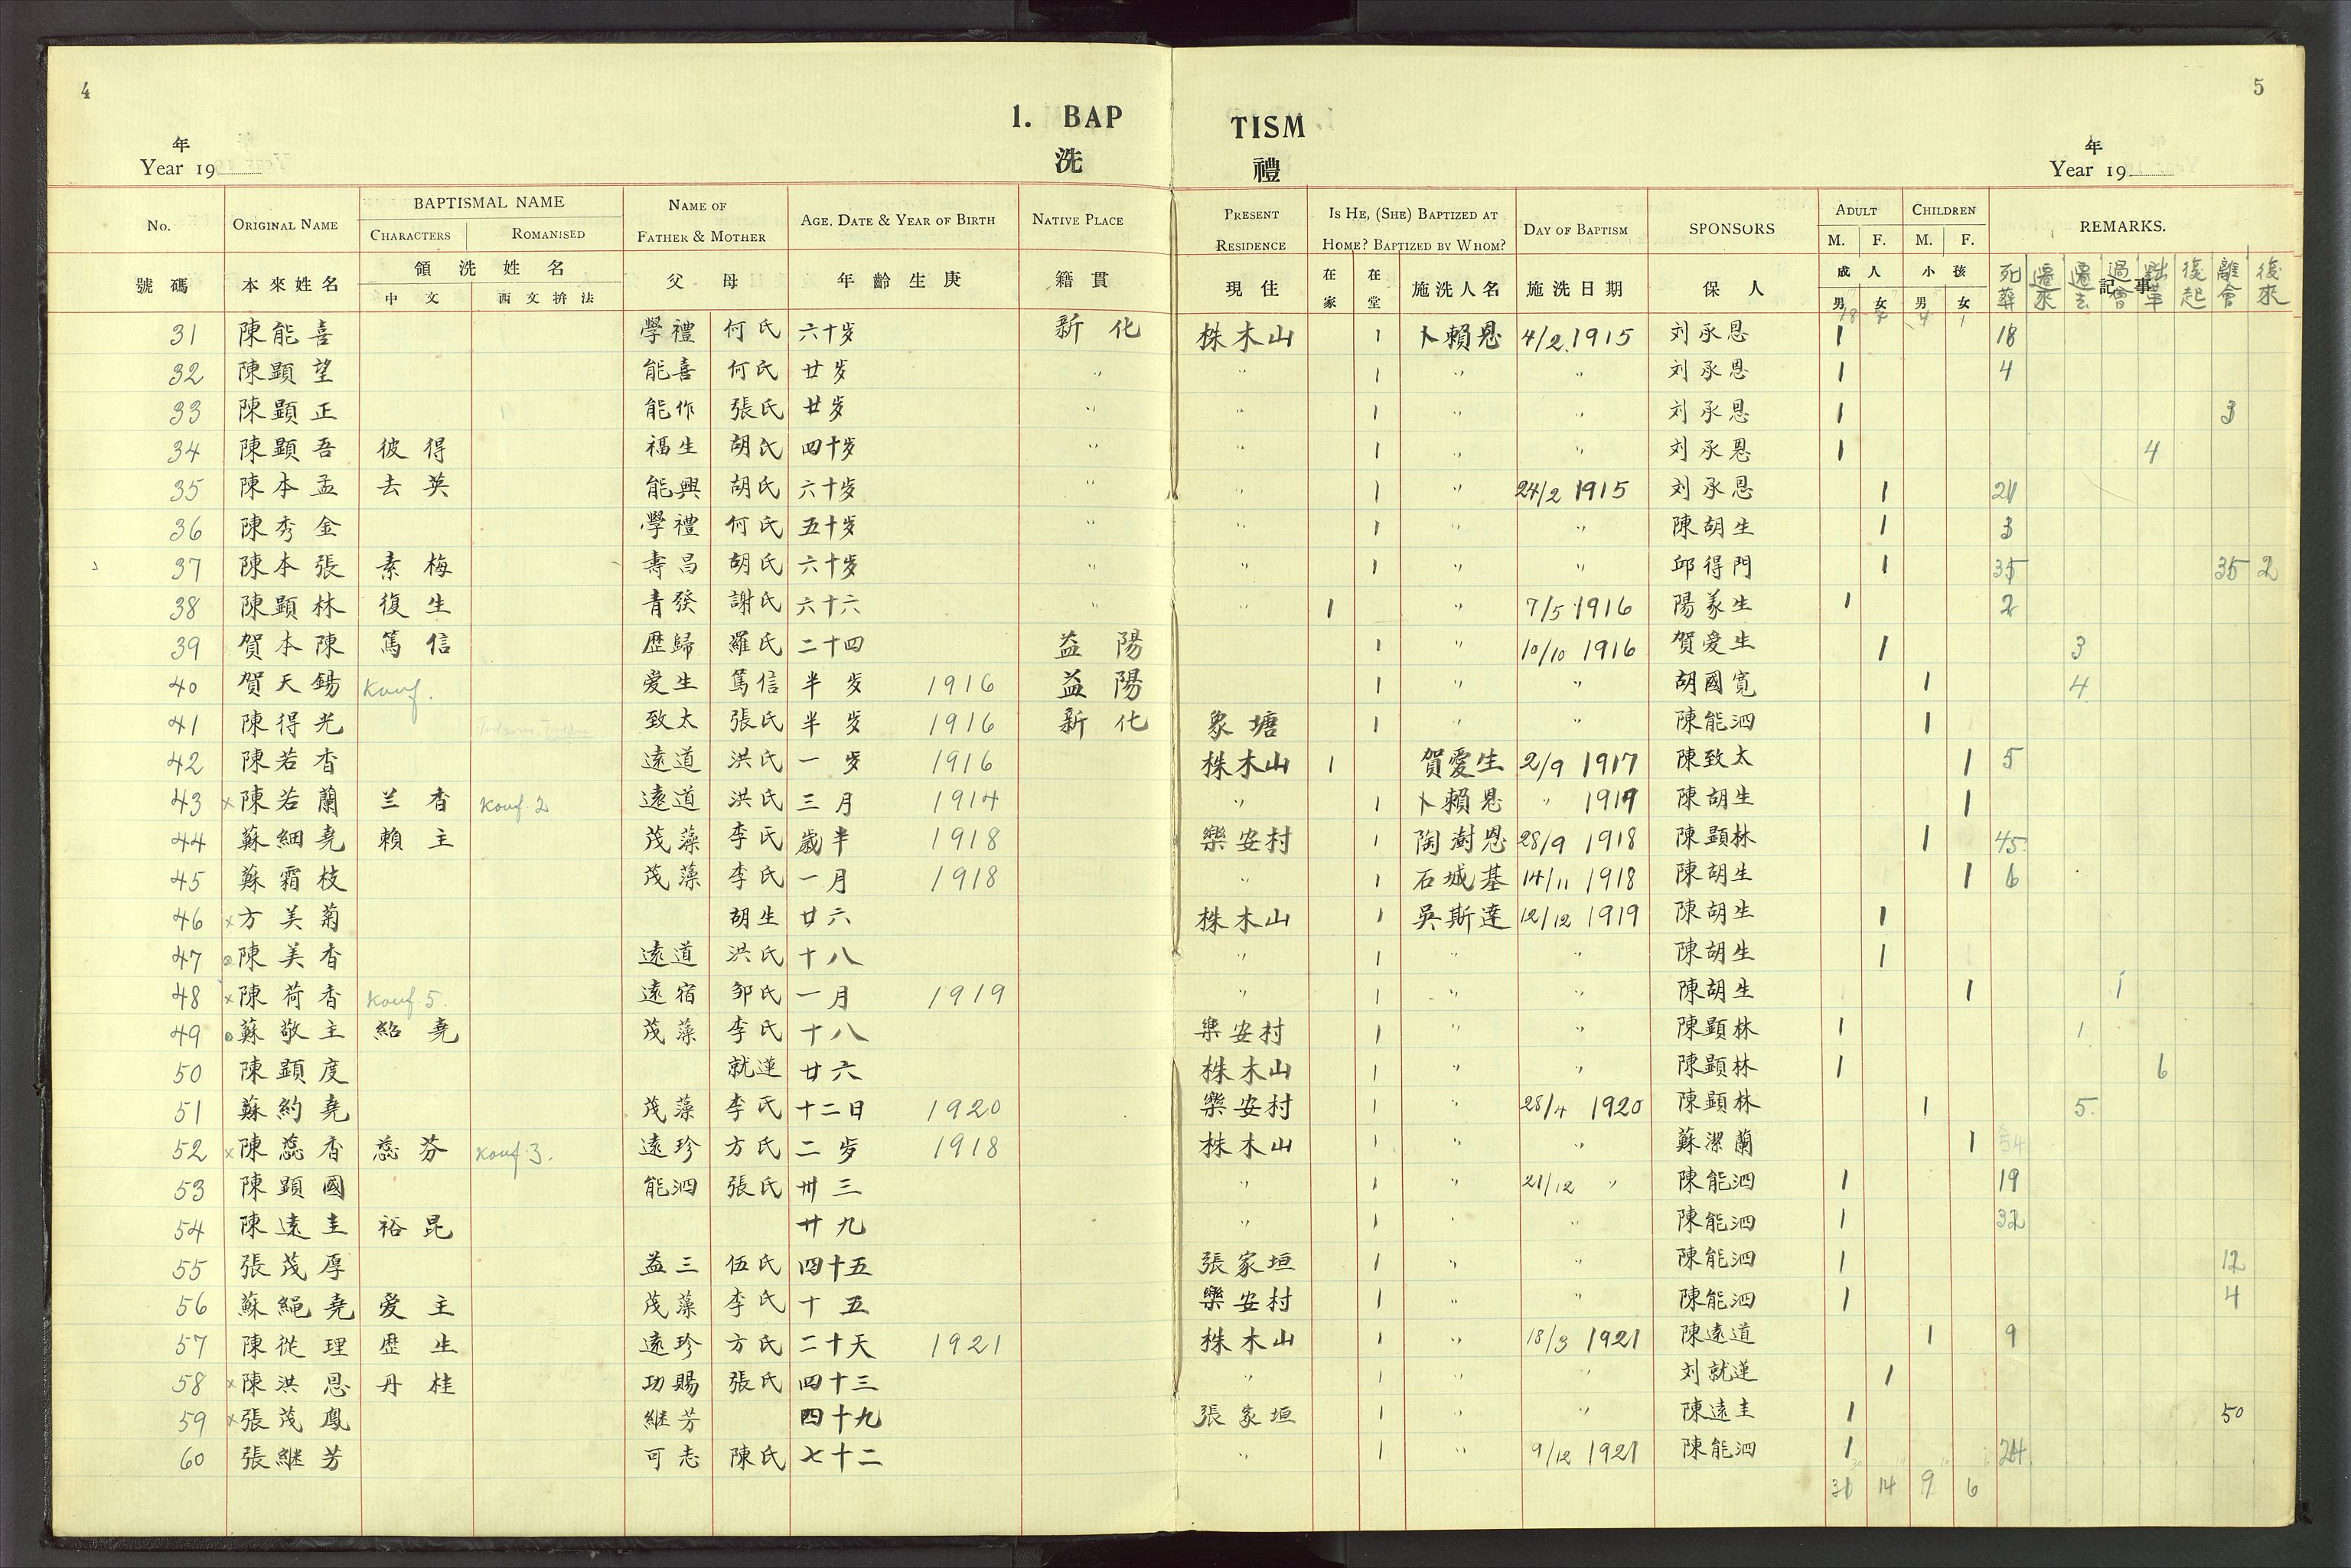 4
5
1. BAP TISM
洗 禮
年
Year 19
年
Year 19
No. ORIGINAL NAME BAPTISMAL NAME NAME OF FATHER & MOTHER AGE, DATE & YEAR OF BIRTH NATIVE PLACE PRESENT RESIDENCE IS HE, (SHE) BAPTIZED AT HOME? BAPTIZED BY WHOM? DAY OF BAPTISM SPONSORS ADULT CHILDREN REMARKS.
CHARACTERS ROMANISED M. F. M. F.
號碼 本來姓名 領洗姓名 父 母 年齡生庚 籍貫 現住 在家 在堂 施洗人名 施洗日期 保人 成人 小孩 記事
中文 西文拚法 男 女 男 女 死葬 遷來 遷去 過會 黜革 復起 離會 復來
18 4 1
31 陳能喜 學禮 何氏 六十岁 新化 株木山 1 卜賴恩 4/2 1915 刘承恩 1 18
32 陳顯望 能喜 何氏 廿岁 〃 〃 1 〃 〃 刘承恩 1 4
33 陳顕正 能作 張氏 廿岁 〃 〃 1 〃 〃 刘承恩 1 3
34 陳顕吾 彼得 福生 胡氏 四十岁 〃 〃 1 〃 〃 刘承恩 1 4
35 陳本孟 去英 能興 胡氏 六十岁 〃 〃 1 〃 24/2 1915 刘承恩 1 21
36 陳秀金 學禮 何氏 五十岁 〃 〃 1 〃 〃 陳胡生 1 3
37 陳本張 素梅 壽昌 胡氏 六十岁 〃 〃 1 〃 〃 邱得門 1 35 35 2
38 陳顕林 復生 青發 謝氏 六十六 〃 〃 1 〃 7/5 1916 陽義生 1 2
39 賀本陳 篤信 歷歸 羅氏 二十四 益陽 1 〃 10/10 1916 賀爱生 1 3
40 賀天錫 Konf. 爱生 篤信 半岁 1916 益陽 1 〃 〃 胡國寬 1 4
41 陳得光 致太 張氏 半岁 1916 新化 象塘 1 〃 〃 陳能泗 1
42 陳若香 遠道 洪氏 一岁 1916 株木山 1 賀愛生 2/9 1917 陳致太 1 5
43 × 陳若蘭 兰香 Konf. 2 遠道 洪氏 三月 1914 〃 1 卜賴恩 〃 1917 陳胡生 1
44 蘇細堯 賴主 茂藻 李氏 歲半 1918 樂安村 1 陶澍恩 28/9 1918 陳顕林 1 45
45 蘇霜枝 茂藻 李氏 一月 1918 〃 1 石城基 14/11 1918 陳胡生 1 6
46 × 方美菊 胡生 廿六 株木山 1 吳斯達 12/12 1919 陳胡生 1
47 陳美香 遠道 洪氏 十八 〃 1 〃 〃 陳胡生 1
48 × 陳荷香 Konf. 5. 遠宿 邹氏 一月 1919 〃 1 〃 〃 陳胡生 1 1
49 蘇敬主 紹堯 茂藻 李氏 十八 樂安村 1 〃 〃 陳顕林 1 1
50 陳顕度 就蓮 廿六 株木山 1 〃 〃 陳顕林 1 6
51 蘇約堯 茂藻 李氏 十二日 1920 樂安村 1 〃 28/4 1920 陳顕林 1 5.
52 × 陳蕊香 蕊芬 Konf. 3. 遠珍 方氏 二岁 1918 株木山 1 〃 〃 蘇潔蘭 1 54
53 陳顕國 能泗 張氏 卅三 〃 1 〃 21/12 〃 陳能泗 1 19
54 陳遠圭 裕昆 廿九 〃 1 〃 〃 陳能泗 1 32
55 張茂厚 益三 伍氏 四十五 張家垣 1 〃 〃 陳能泗 1 12
56 蘇繩堯 爱主 茂藻 李氏 十五 樂安村 1 〃 〃 陳能泗 1 4
57 陳從理 歷生 遠珍 方氏 二十天 1921 株木山 1 〃 18/3 1921 陳遠道 1 9
58 × 陳洪恩 丹桂 功賜 張氏 四十三 〃 1 〃 〃 刘就蓮 1
59 × 張茂鳳 継芳 四十九 張家垣 1 〃 〃 陳遠圭 1 50
60 張継芳 可志 陳氏 七十二 〃 1 〃 9/12 1921 陳能泗 1 24
31 14 9 6